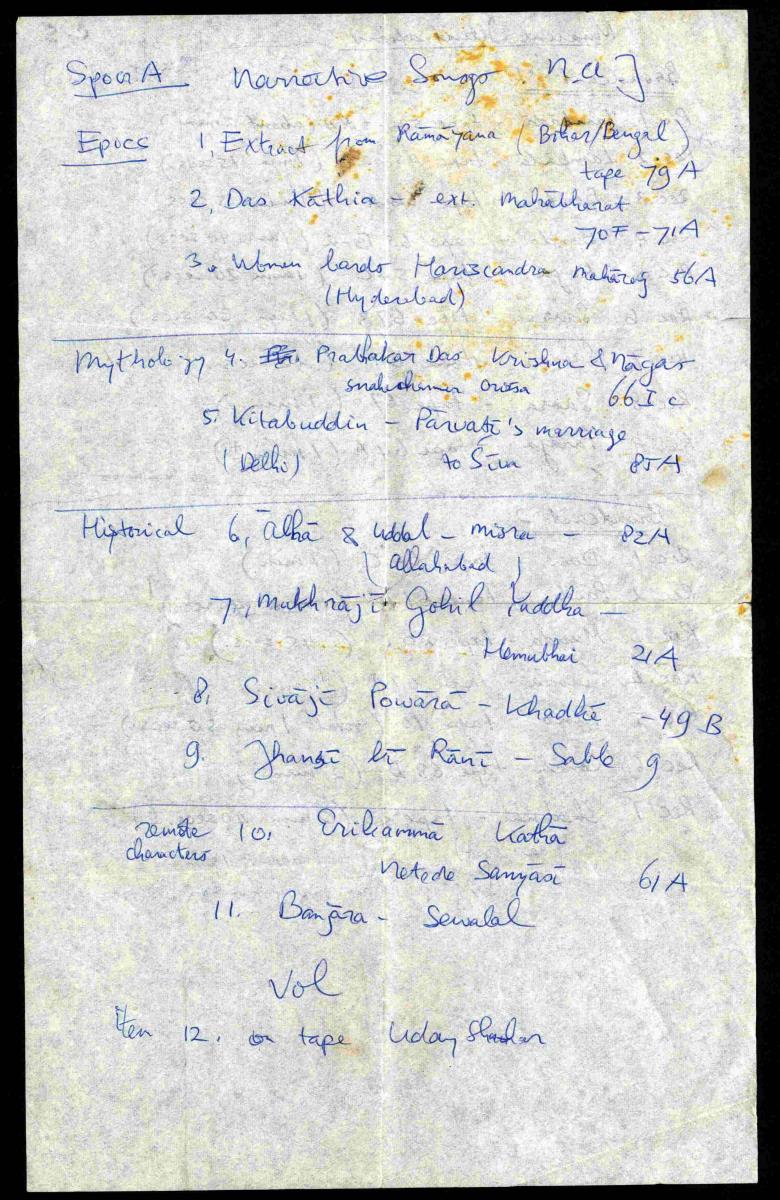 Spool A Narrative Songs
Epocs 1, Extract from Rāmāyana (Bihar/Bengal)
tape 79 A
2, Das Kāthia - ext. Mahābharat
70F - 71A
3. Women bards Hariscandra Mahārāj 56A
(Hyderabad)
Mythology 4. Prabhakar Das Krishna & Nāgas
snakecharmer Orissa 66 I c
5. Kitabuddin - Pārvatī's marriage
(Delhi) to Śiva 85A
Historical 6, Ālhā & Uddal - Misra - 82A
Allahabad
7, Mokhrājī Gohil Yuddha -
Hemubhai 21A
8. Sivājī Powārā - Khadkē - 49 B
9. Jhansī kī Rānī - Sable 9
remote 10. Erikammā Kathā
characters
Netede Sanyāsī 61 A
11. Banjāra - Sewalal
Vol
Item 12. on tape Uday Shankar